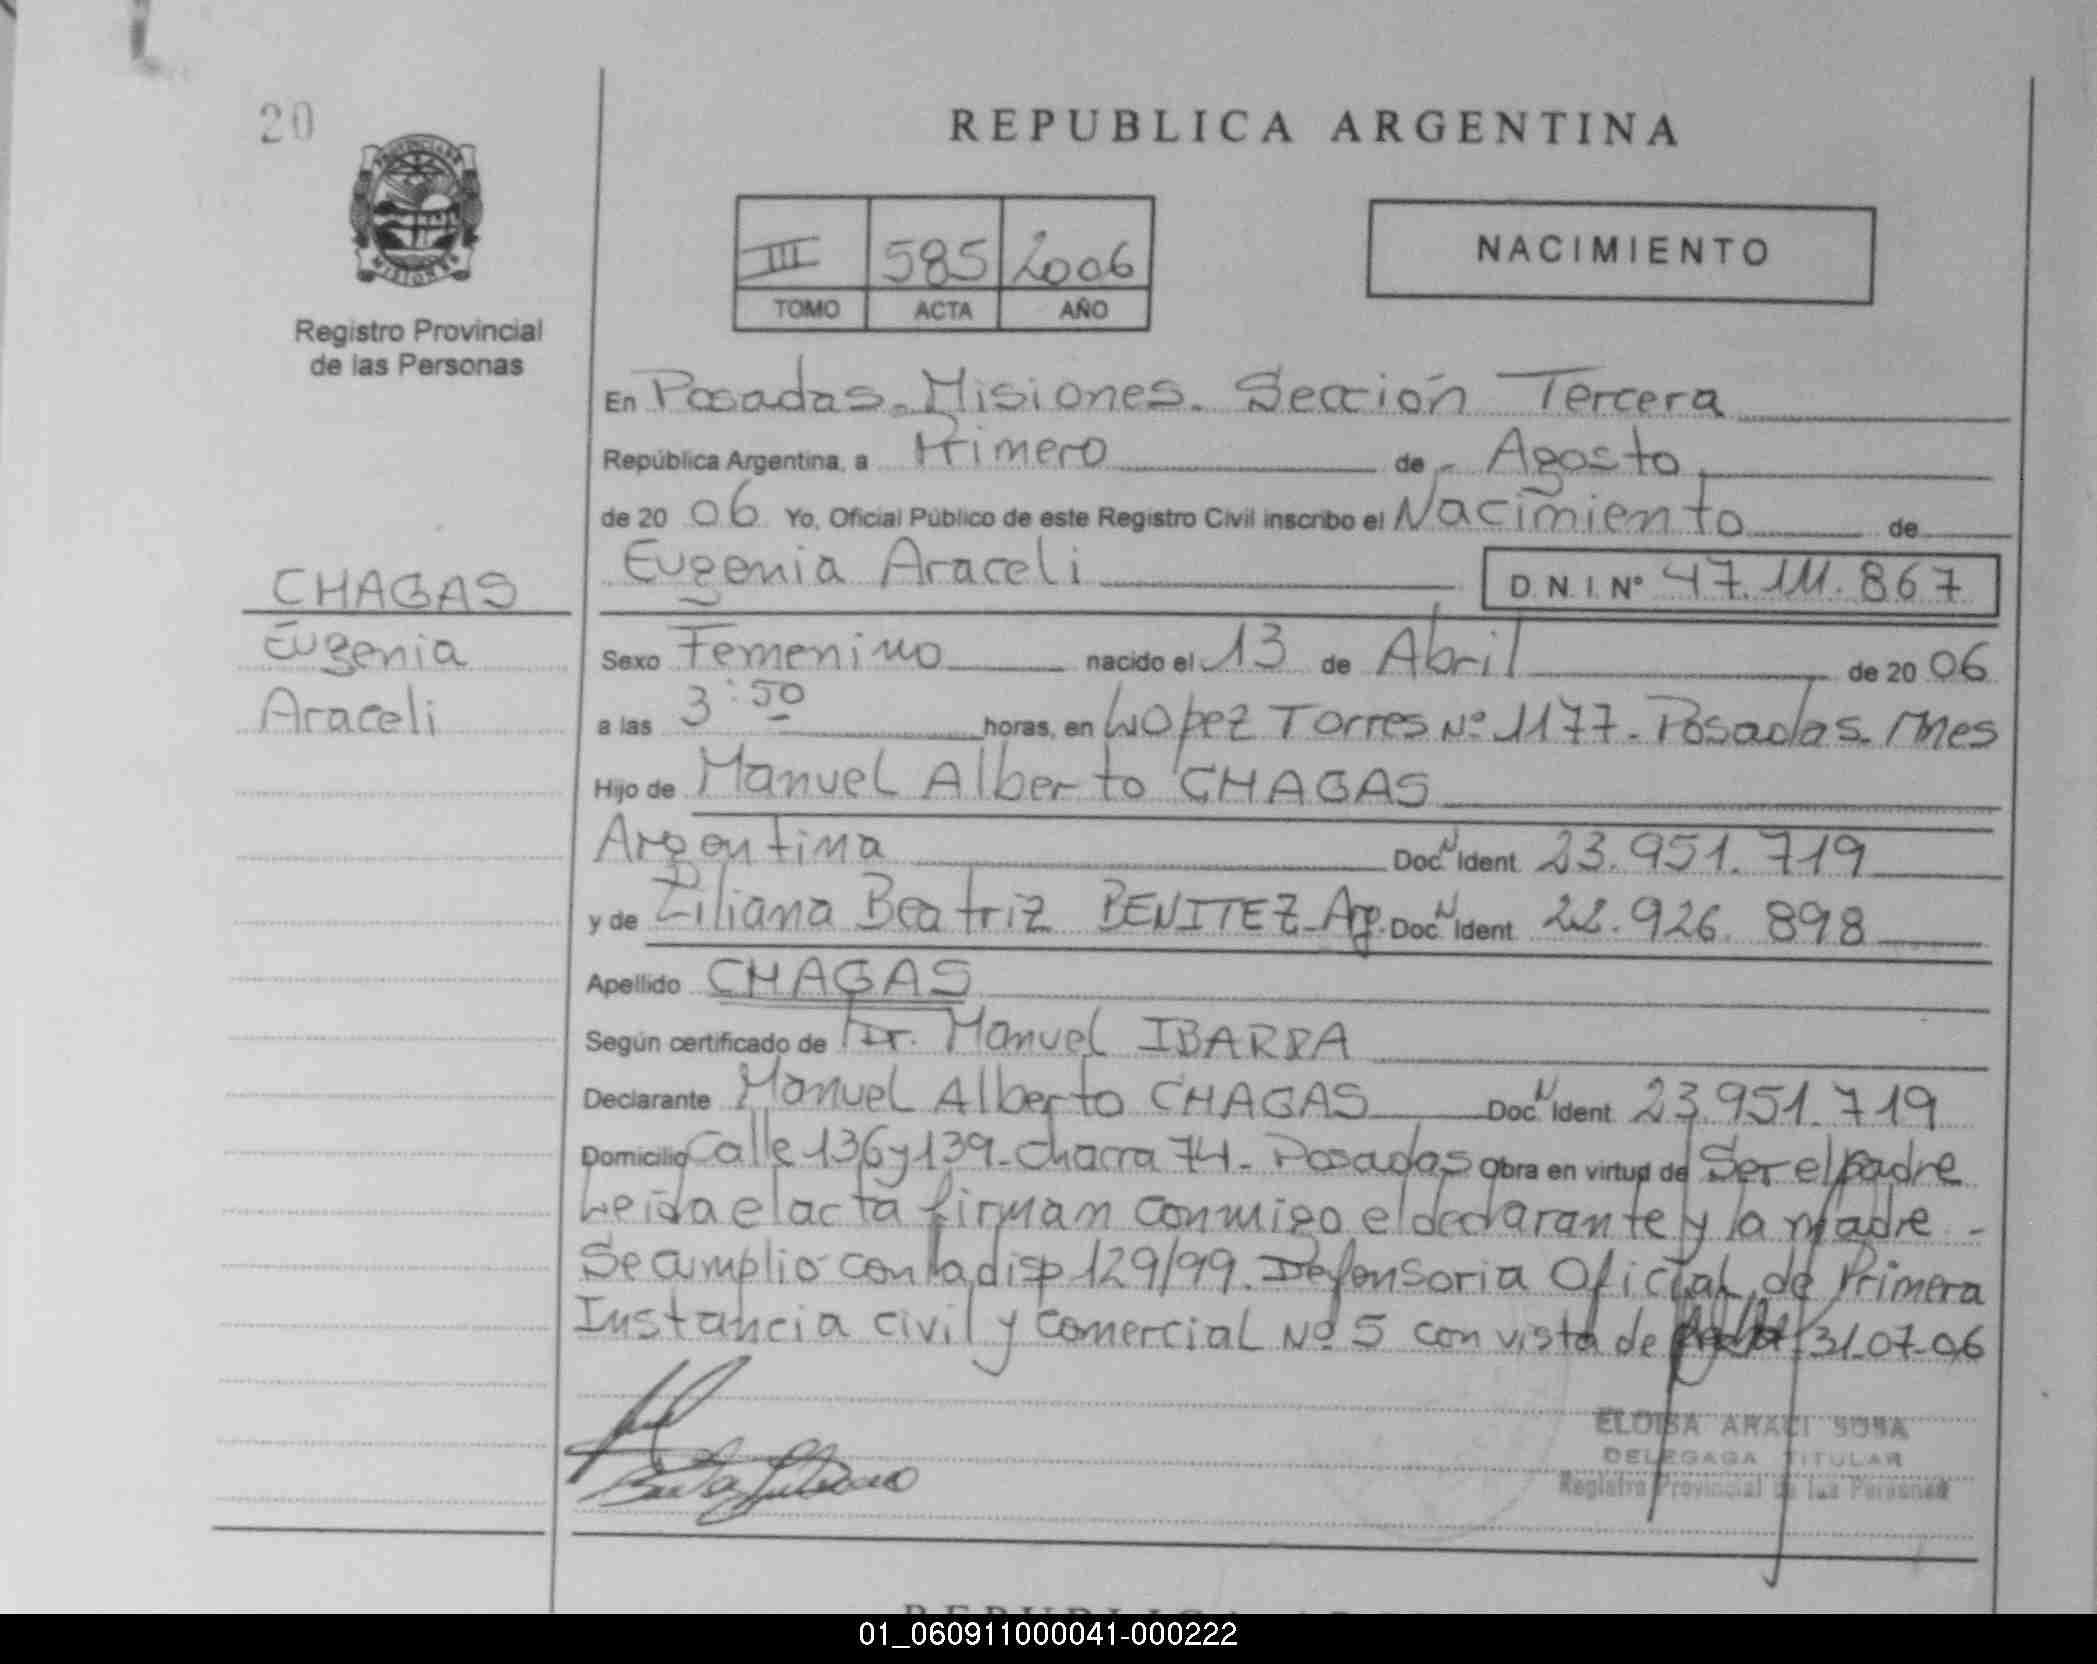 20
REPUBLICA ARGENTINA
PROVINCIA DE
MISIONES
Registro Provincial
de las Personas
III 585 2006
TOMO ACTA AÑO
NACIMIENTO
En Posadas. Misiones. Sección Tercera
República Argentina, a Primero de Agosto
de 20 06 Yo, Oficial Público de este Registro Civil inscribo el Nacimiento de
Eugenia Araceli D. N. I. Nº 47.111.867
CHAGAS
Eugenia
Araceli
Sexo Femenino nacido el 13 de Abril de 20 06
a las 3:50 horas, en Lopez Torres Nº 1177. Posadas. Mnes
Hijo de Manuel Alberto CHAGAS
Argentina Doc. N Ident. 23.951.719
y de Liliana Beatriz BENITEZ - Arg. Doc. N Ident. 22.926.898
Apellido CHAGAS
Según certificado de Dr. Manuel IBARRA
Declarante Manuel Alberto CHAGAS Doc. N Ident. 23.951.719
Domicilio Calle 136 y 139 - chacra 74 - Posadas Obra en virtud de Ser el padre
Leida el acta firman conmigo el declarante y la madre -
Se cumplio con la disp 129/99. Defensoria Oficial de Primera
Instancia civil y comercial Nº 5 con vista de 31-07-06
ELOISA ARACI SOSA
DELEGADA TITULAR
Registro Provincial de las Personas
01_060911000041-000222